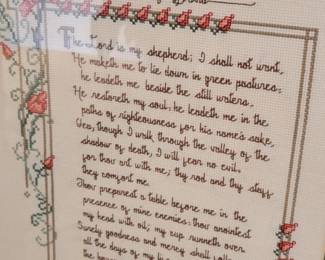 The Lord is my shepherd; I shall not want.
He maketh me to lie down in green pastures:
he leadeth me beside the still waters.
He restoreth my soul: he leadeth me in the
paths of righteousness for his name's sake.
Yea, though I walk through the valley of the
shadow of death, I will fear no evil:
for thou art with me; thy rod and thy staff
they comfort me.
Thou preparest a table before me in the
presence of mine enemies: thou anointest
my head with oil; my cup runneth over.
Surely goodness and mercy shall
all the days of my